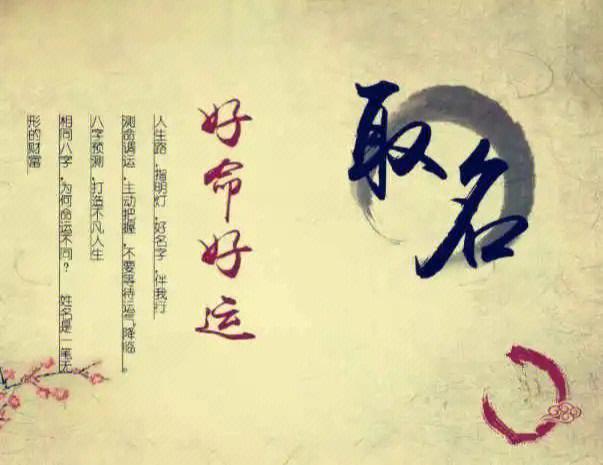 取名
好命好运
人生路，指明灯，好名字，伴我行
测命调运，主动把握，不要等待运气降临。
八字预测，打造不凡人生
相同八字，为何命运不同？ 姓名是一笔无
形的财富